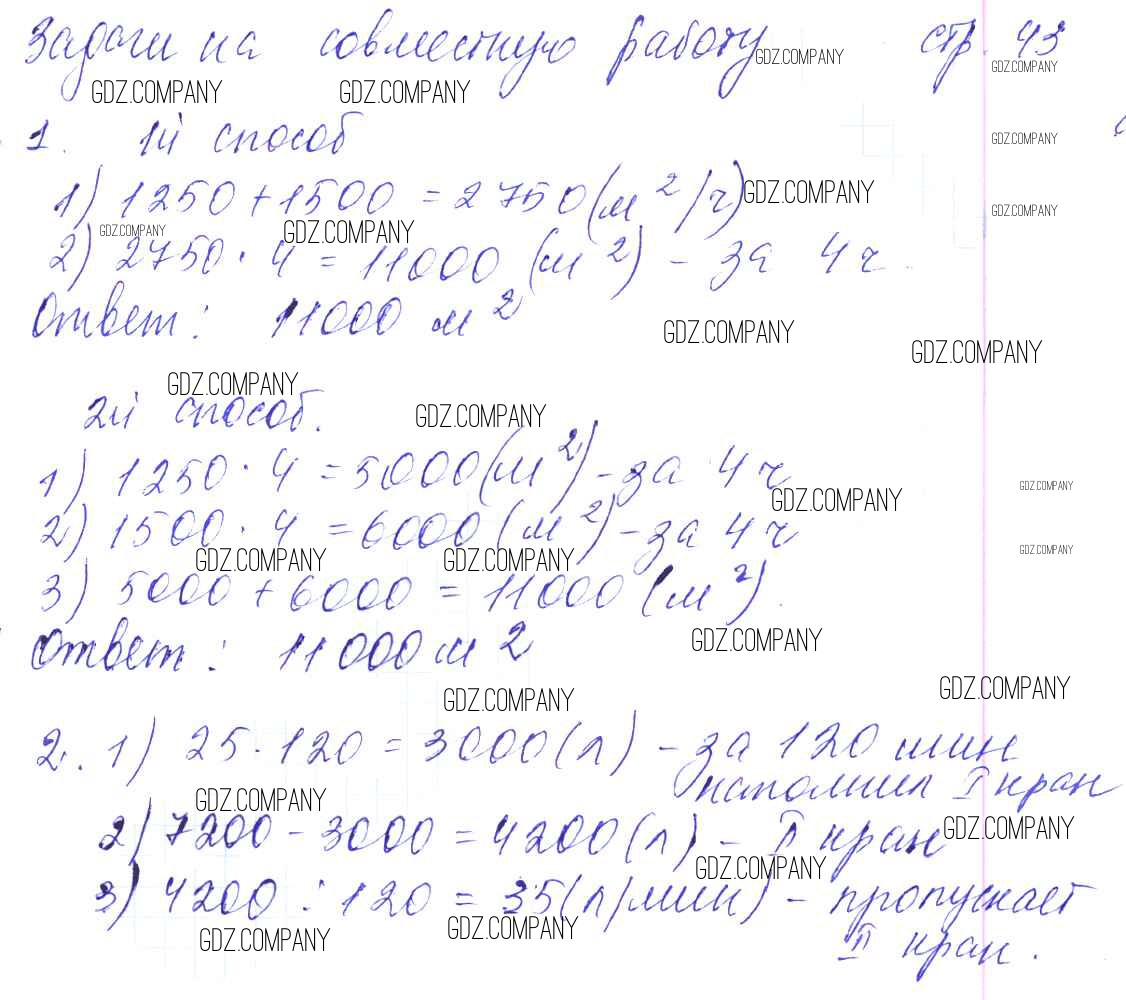 Задачи на совместную работу стр. 43
GDZ.COMPANY
GDZ.COMPANY
GDZ.COMPANY GDZ.COMPANY
1. 1й способ
GDZ.COMPANY
1) 1250 + 1500 = 2750 (м²/ч)
GDZ.COMPANY
GDZ.COMPANY
GDZ.COMPANY GDZ.COMPANY
2) 2750 · 4 = 11000 (м²) - за 4 ч.
Ответ: 11000 м²
GDZ.COMPANY
GDZ.COMPANY
GDZ.COMPANY
2й способ.
GDZ.COMPANY
1) 1250 · 4 = 5000 (м²) - за 4 ч
GDZ.COMPANY
GDZ.COMPANY
2) 1500 · 4 = 6000 (м²) - за 4 ч
GDZ.COMPANY GDZ.COMPANY
GDZ.COMPANY
3) 5000 + 6000 = 11000 (м²).
Ответ: 11000 м²
GDZ.COMPANY
GDZ.COMPANY
GDZ.COMPANY
2. 1) 25 · 120 = 3000 (л) - за 120 мин
наполнил I кран
GDZ.COMPANY
2) 7200 - 3000 = 4200 (л) - II кран
GDZ.COMPANY
GDZ.COMPANY
3) 4200 : 120 = 35 (л/мин) - пропускает
GDZ.COMPANY GDZ.COMPANY
II кран.